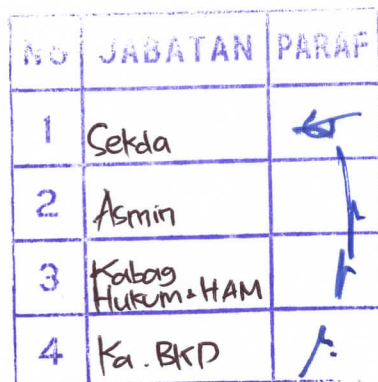 NO JABATAN PARAF
1 Sekda
2 Asmin
3 Kabag
Hukum & HAM
4 Ka. BKD